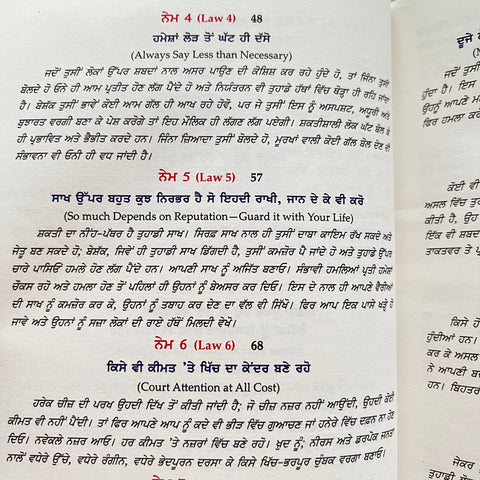 ਨੇਮ 4 (Law 4) 48
ਹਮੇਸ਼ਾਂ ਲੋੜ ਤੋਂ ਘੱਟ ਹੀ ਦੱਸੋ
(Always Say Less than Necessary)
ਜਦੋਂ ਤੁਸੀਂ ਲੋਕਾਂ ਉੱਪਰ ਸ਼ਬਦਾਂ ਨਾਲ ਅਸਰ ਪਾਉਣ ਦੀ ਕੋਸ਼ਿਸ਼ ਕਰ ਰਹੇ ਹੁੰਦੇ ਹੋ, ਤਾਂ ਜਿੰਨਾ ਤੁਸੀਂ
ਬੋਲਦੇ ਹੋ ਓਨੇ ਹੀ ਆਮ ਪ੍ਰਤੀਤ ਹੋਣ ਲੱਗ ਪੈਂਦੇ ਹੋ ਅਤੇ ਨਿਯੰਤਰਨ ਵੀ ਤੁਹਾਡੇ ਹੱਥਾਂ ਵਿੱਚ ਥੋੜ੍ਹਾ ਹੀ ਰਹਿ ਜਾਂਦਾ
ਹੈ। ਬੇਸ਼ੱਕ ਤੁਸੀਂ ਭਾਵੇਂ ਕੋਈ ਆਮ ਗੱਲ ਹੀ ਆਖ ਰਹੇ ਹੋਵੋ, ਪਰ ਜੇ ਤੁਸੀਂ ਇਸ ਨੂੰ ਅਸਪਸ਼ਟ, ਅਧੂਰੀ ਅਤੇ
ਬੁਝਾਰਤ ਵਰਗੀ ਬਣਾ ਕੇ ਪੇਸ਼ ਕਰੋਗੇ ਤਾਂ ਇਹ ਮੌਲਿਕ ਹੀ ਲੱਗਣ ਲੱਗ ਪਏਗੀ। ਸ਼ਕਤੀਸ਼ਾਲੀ ਲੋਕ ਘੱਟ ਬੋਲ ਕੇ
ਹੀ ਪ੍ਰਭਾਵਿਤ ਅਤੇ ਭੈਭੀਤ ਕਰਦੇ ਹਨ। ਜਿੰਨਾ ਜ਼ਿਆਦਾ ਤੁਸੀਂ ਬੋਲਦੇ ਹੋ, ਮੂਰਖਾਂ ਵਾਲੀ ਕੋਈ ਗੱਲ ਬੋਲ ਦੇਣ ਦੀ
ਸੰਭਾਵਨਾ ਵੀ ਓਨੀ ਹੀ ਵਧ ਜਾਂਦੀ ਹੈ।
ਨੇਮ 5 (Law 5) 57
ਸਾਖ ਉੱਪਰ ਬਹੁਤ ਕੁਝ ਨਿਰਭਰ ਹੈ ਸੋ ਇਹਦੀ ਰਾਖੀ, ਜਾਨ ਦੇ ਕੇ ਵੀ ਕਰੋ
(So much Depends on Reputation—Guard it with Your Life)
ਸ਼ਕਤੀ ਦਾ ਨੀਂਹ-ਪੱਥਰ ਹੈ ਤੁਹਾਡੀ ਸਾਖ। ਸਿਰਫ਼ ਸਾਖ ਨਾਲ ਹੀ ਤੁਸੀਂ ਦਾਬਾ ਕਾਇਮ ਰੱਖ ਸਕਦੇ ਅਤੇ
ਜੇਤੂ ਬਣ ਸਕਦੇ ਹੋ; ਬੇਸ਼ੱਕ, ਜਿਵੇਂ ਹੀ ਤੁਹਾਡੀ ਸਾਖ ਡਿੱਗਦੀ ਹੈ, ਤੁਸੀਂ ਕਮਜ਼ੋਰ ਪੈ ਜਾਂਦੇ ਹੋ ਅਤੇ ਤੁਹਾਡੇ ਉੱਪਰ
ਚਾਰੇ ਪਾਸਿਓਂ ਹਮਲੇ ਹੋਣ ਲੱਗ ਪੈਂਦੇ ਹਨ। ਆਪਣੀ ਸਾਖ ਨੂੰ ਅਜਿੱਤ ਬਣਾਓ। ਸੰਭਾਵੀ ਹਮਲਿਆਂ ਪ੍ਰਤੀ ਹਮੇਸ਼ਾਂ
ਚੌਕਸ ਰਹੋ ਅਤੇ ਹਮਲਾ ਹੋਣ ਤੋਂ ਪਹਿਲਾਂ ਹੀ ਉਹਨਾਂ ਨੂੰ ਬੇਅਸਰ ਕਰ ਦਿਓ। ਇਸ ਦੇ ਨਾਲ ਹੀ ਆਪਣੇ ਵੈਰੀਆਂ
ਦੀ ਸਾਖ ਨੂੰ ਕਮਜ਼ੋਰ ਕਰ ਕੇ, ਉਹਨਾਂ ਨੂੰ ਤਬਾਹ ਕਰ ਦੇਣ ਦਾ ਵੱਲ ਵੀ ਸਿੱਖੋ। ਫਿਰ ਆਪ ਇਕ ਪਾਸੇ ਖੜ੍ਹੇ ਹੋ
ਜਾਵੋ ਅਤੇ ਉਹਨਾਂ ਨੂੰ ਸਜ਼ਾ ਲੋਕਾਂ ਦੀ ਰਾਏ ਹੱਥੋਂ ਮਿਲਦੀ ਵੇਖੋ।
ਨੇਮ 6 (Law 6) 68
ਕਿਸੇ ਵੀ ਕੀਮਤ 'ਤੇ ਖਿੱਚ ਦਾ ਕੇਂਦਰ ਬਣੇ ਰਹੋ
(Court Attention at All Cost)
ਹਰੇਕ ਚੀਜ਼ ਦੀ ਪਰਖ ਉਹਦੀ ਦਿੱਖ ਤੋਂ ਕੀਤੀ ਜਾਂਦੀ ਹੈ; ਜੋ ਚੀਜ਼ ਨਜ਼ਰ ਨਹੀਂ ਆਉਂਦੀ, ਉਹਦੀ ਕੋਈ
ਕੀਮਤ ਵੀ ਨਹੀਂ ਪੈਂਦੀ। ਤਾਂ ਫਿਰ ਆਪਣੇ ਆਪ ਨੂੰ ਕਦੇ ਵੀ ਭੀੜ ਵਿੱਚ ਗੁਆਚਣ ਜਾਂ ਹਨੇਰੇ ਵਿੱਚ ਦਫ਼ਨ ਨਾ ਹੋਣ
ਦਿਓ। ਨਵੇਕਲੇ ਨਜ਼ਰ ਆਓ। ਹਰ ਕੀਮਤ 'ਤੇ ਨਜ਼ਰਾਂ ਵਿੱਚ ਬਣੇ ਰਹੋ। ਖ਼ੁਦ ਨੂੰ; ਨੀਰਸ ਅਤੇ ਡਰਪੋਕ ਜਨਤਾ
ਨਾਲੋਂ ਵਧੇਰੇ ਉੱਚੇ, ਵਧੇਰੇ ਰੰਗੀਨ, ਵਧੇਰੇ ਭੇਦਪੂਰਨ ਦਰਸਾ ਕੇ ਕਿਸੇ ਖਿੱਚ-ਭਰਪੂਰ ਚੁੰਬਕ ਵਰਗਾ ਬਣਾਓ।
ਦੂਜੇ
ਜਦੋਂ ਤੁਸੀਂ
ਹੁੰਦਾ ਹੈ। ਇਸ
ਉਹਨੂੰ ਆਪਣੇ
ਫਿਰ ਹਮਲਾ
ਕੋਈ ਵੀ
ਅਸਲ ਵਿੱਚ
ਕੀਤੀ ਹੈ, ਉਹ
ਇੱਕ ਵੀ ਸ਼ਬਦ
ਤਾਕਤਵਰ ਤੇ
ਕਿਸੇ ਹੋ
ਹੁੰਦੀਆਂ ਹਨ।
ਕਰ ਕੇ ਅਸਲ
ਨੇ ਆਪਣੀ
ਹਨ। ਬਿਹਤਰ
ਜੇਕਰ
ਤੁਹਾਡੀ